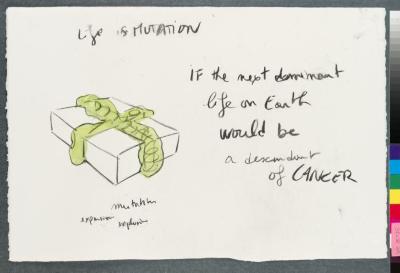 Life is MUTATION
IF the next dominant
life on Earth
would be
a descendant
of CANCER
mutation
expansion
explosion